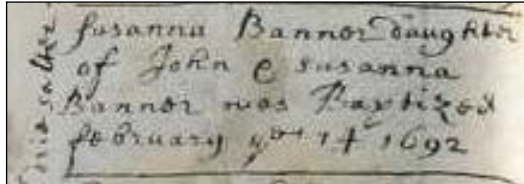 susanna Bannor daughter
of John & susanna
Bannor was Baptized
february ye 14 1692